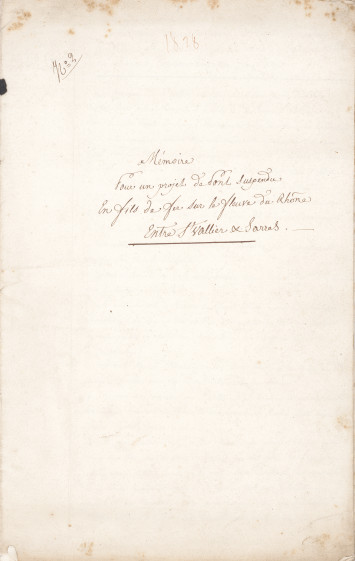 1828
N° 2
Mémoire
Pour un projet de Pont Suspendu
En fils de fer sur le fleuve du Rhône
Entre St Vallier & Sarras.